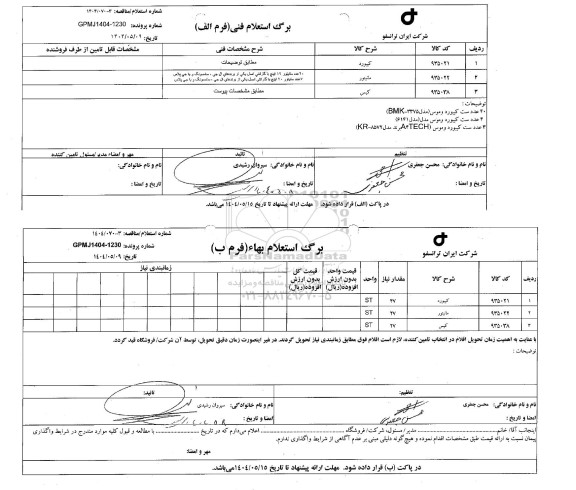 شماره استعلام/مناقصه: ۱۴۰۴-۰۷-۰۳
شماره پرونده: GPMJ1404-1230
تاریخ: ۱۴۰۴/۰۵/۰۹
برگ استعلام فنی(فرم الف)
شرکت ایران ترانسفو
ردیف کد کالا شرح کالا شرح مشخصات فنی مشخصات قابل تامین از طرف فروشنده
۱ ۹۳۵۰۲۱ کیبورد مطابق توضیحات
۲ ۹۳۵۰۲۲ مانیتور
۳ ۹۳۵۰۳۸ کیس مطابق مشخصات پیوست
توضیحات:
۲۰ عدد ست کیبورد وموس(مدل BMK-۳۳۷۵)
۴ عدد ست کیبورد و موس مدل(مدل ۶۱۴)
۳ عدد ست کیبورد وموس (A4TECHبرند مدل KR-۸۵۷۲)
تنظیم تائید مهر و امضاء مدیر/مسئول تامین کننده
نام و نام خانوادگی: محسن جعفری نام و نام خانوادگی: سیروان رشیدی نام و نام خانوادگی:
و امضا: تاریخ و امضا: تاریخ و امضا:
در پاکت (الف) قرار داده شود. مهلت ارائه پیشنهاد تا تاریخ ۱۴۰۴/۰۵/۱۵ می‌باشد.
شماره استعلام/مناقصه: ۱۴۰۴-۰۷-۰۳
شماره پرونده: GPMJ1404-1230
تاریخ: ۱۴۰۴/۰۵/۰۹
برگ استعلام بهاء(فرم ب)
شرکت ایران ترانسفو
ردیف کد کالا شرح کالا مقدار نیاز واحد قیمت واحد بدون ارزش افزوده(ریال) قیمت کل بدون ارزش افزوده(ریال) زمانبندی نیاز
۱ ۹۳۵۰۲۱ کیبورد ۲۷ ST
۲ ۹۳۵۰۲۲ مانیتور ۲۷ ST
۳ ۹۳۵۰۳۸ کیس ۲۷ ST
ParsNamadData
۰۲۱-۸۸۳۴۹۶۷۰-۵
با عنایت به اهمیت زمان تحویل اقلام در انتخاب تامین کننده، لازم است اقلام فوق مطابق زمانبندی نیاز تحویل گردند. در غیر اینصورت زمان دقیق تحویل، توسط آن شرکت/فروشگاه قید گردد.
توضیحات:
تنظیم: تائید:
نام و نام خانوادگی: محسن جعفری نام و نام خانوادگی: سیروان رشیدی
امضا و تاریخ: امضا و تاریخ:
اینجانب آقا/ خانم مدیر/ مسئول، شرکت/ فروشگاه اعلام می‌دارم که در تاریخ با مطالعه و قبول کلیه موارد مندرج در شرایط واگذاری
پیمان نسبت به ارائه قیمت طبق مشخصات اقدام نموده و هیچ‌گونه دلیلی مبنی بر عدم آگاهی از شرایط واگذاری ندارم.
مهر و امضا:
در پاکت (ب) قرار داده شود. مهلت ارائه پیشنهاد تا تاریخ ۱۴۰۴/۰۵/۱۵ می‌باشد.